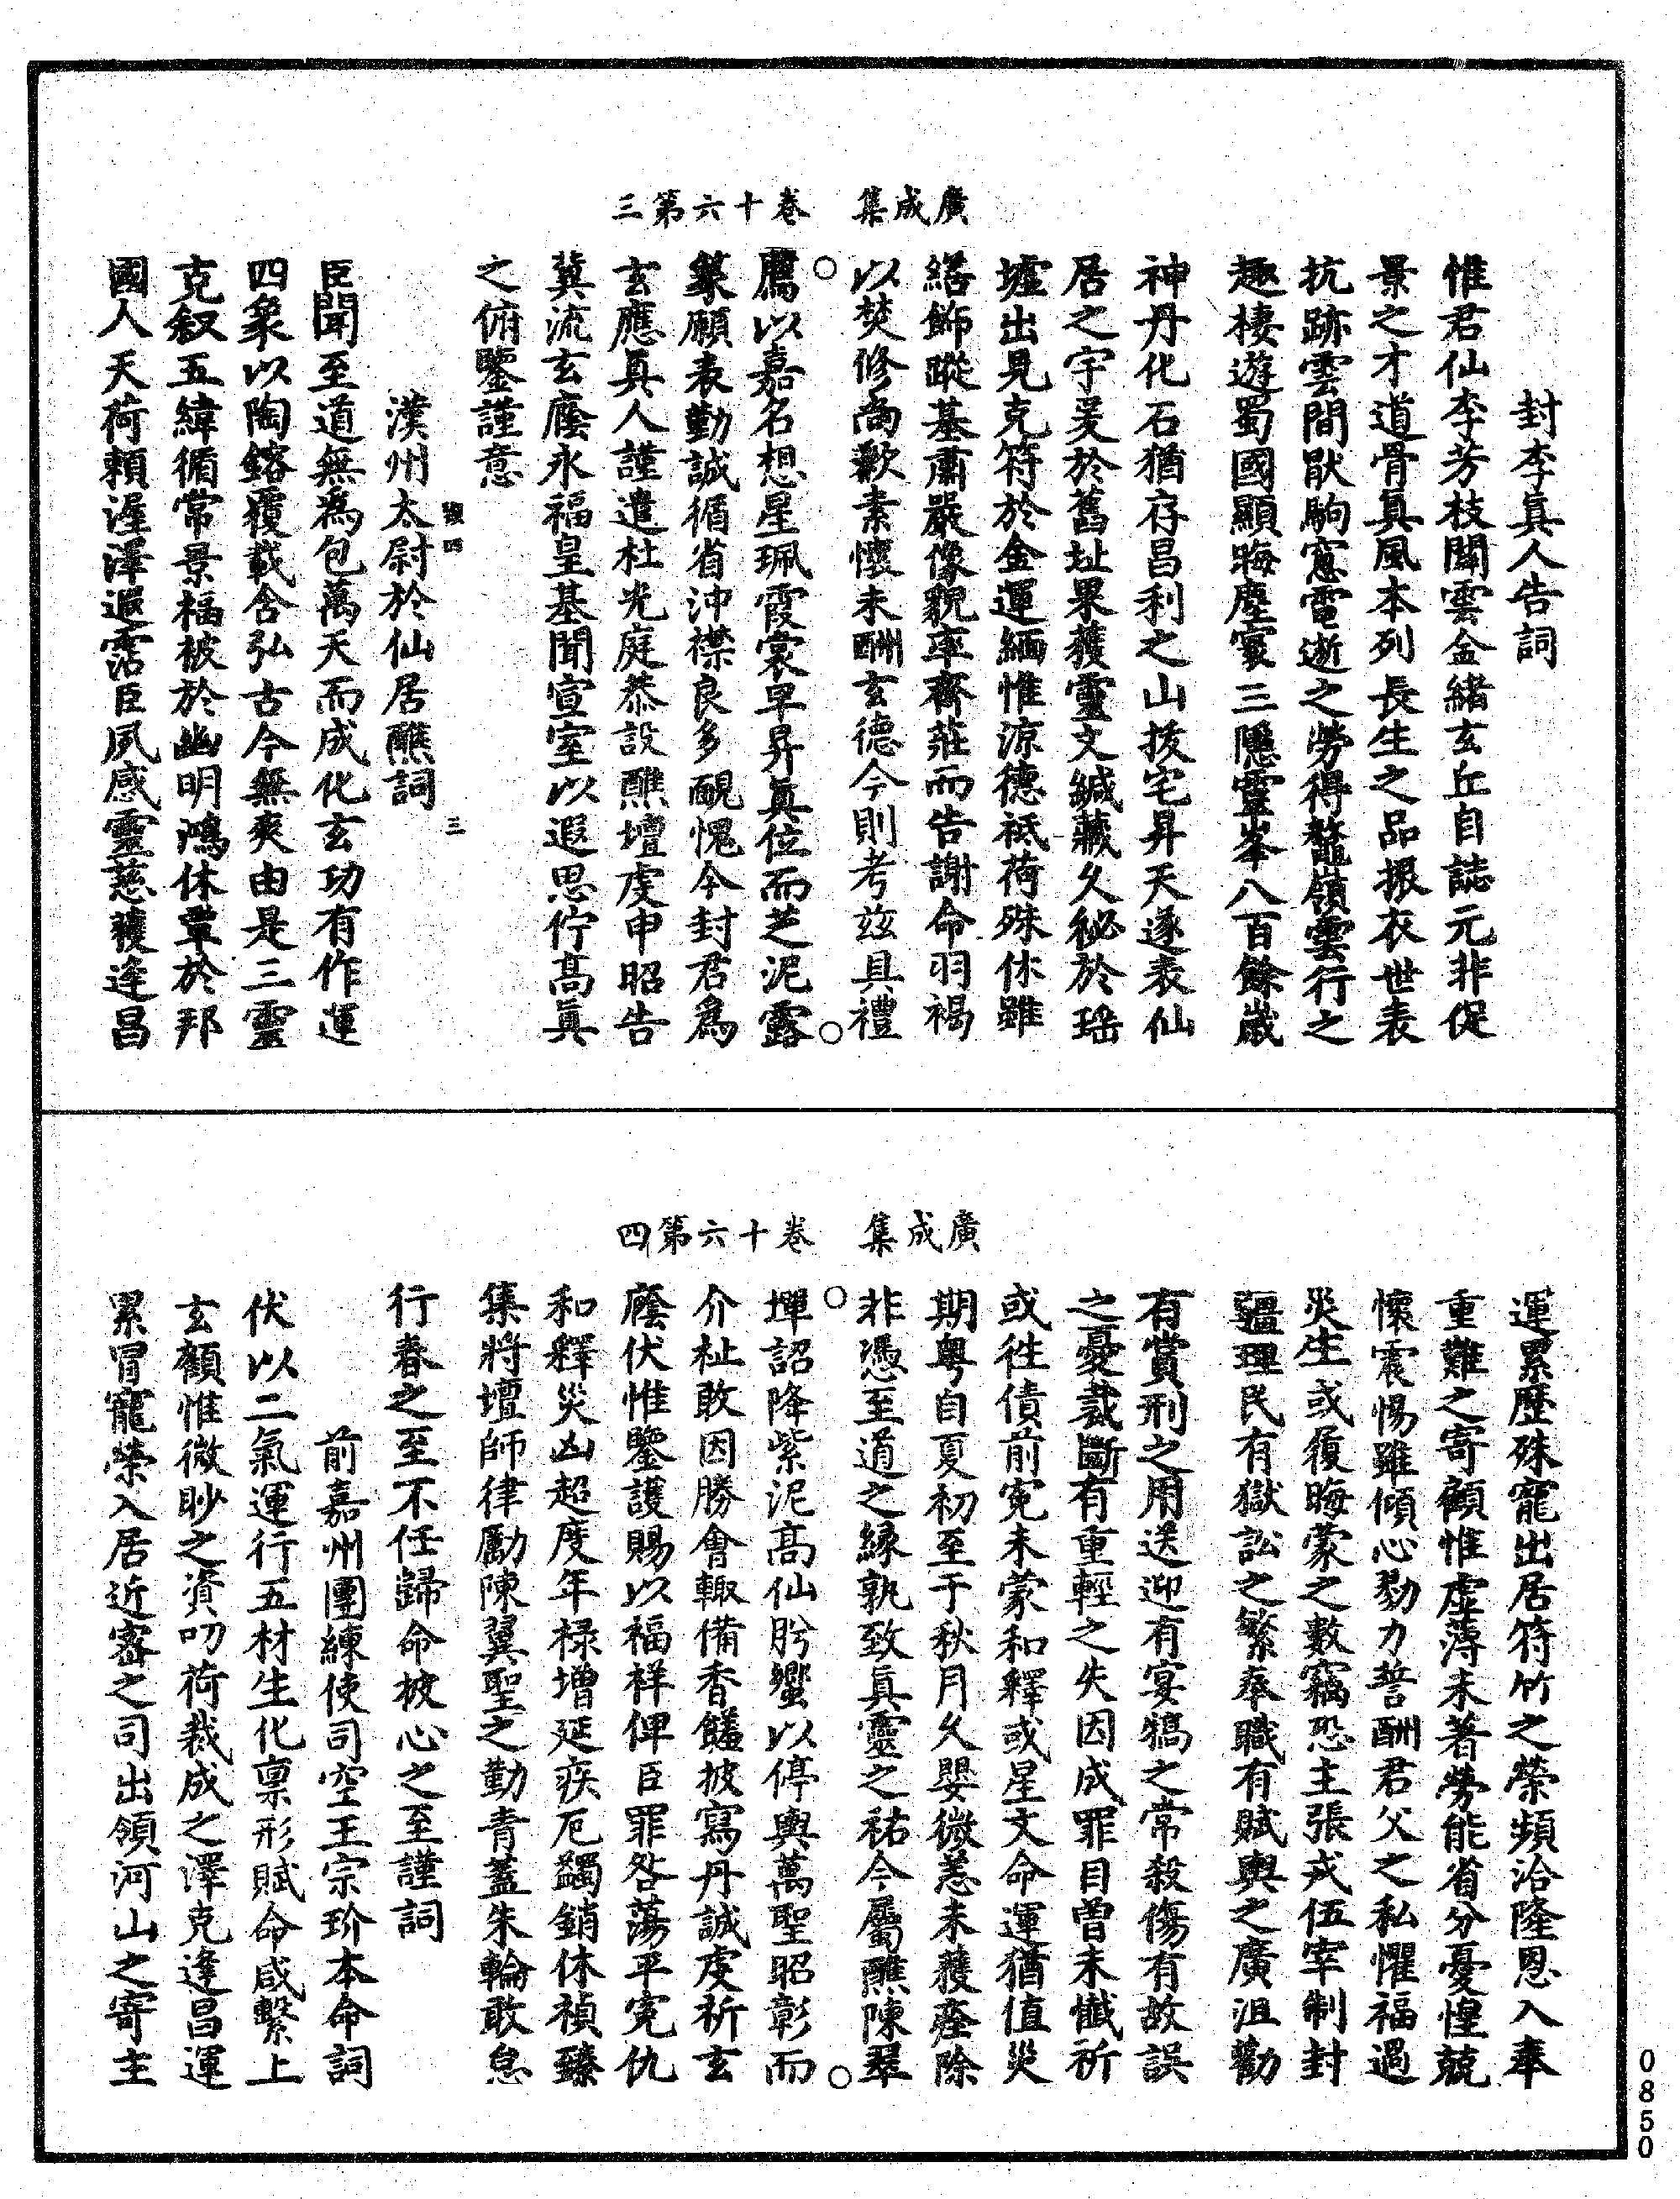 廣成集　卷十六第三
封李真人告詞
惟君仙李芳枝關雲金緒玄丘自誌元非促
景之才道骨真風本列長生之品振衣世表
抗跡雲間猒駒窻電逝之勞得鼇嶺雲行之
趣棲遊蜀國顯晦塵寰三隱靈峯八百餘歲
神丹化石猶存昌利之山拔宅昇天遂表仙
居之宇爰於舊址果獲靈文緘藏久祕於瑤
墟出見克符於金運緬惟涼德祗荷殊休雖
繕飾蹤基肅嚴像貌率齋莊而告謝命羽褐
以焚修尚歉素懷未酬玄德今則考兹具禮
薦以嘉名想星珮霞裳早昇真位而芝泥露
篆願表勤誠循省沖襟良多靦愧今封君為
玄應真人謹遣杜光庭恭設醮壇虔申昭告
冀流玄廕永福皇基聞宣室以遐思佇高真
之俯鑒謹意
漢州太尉於仙居醮詞
臣聞至道無為包萬天而成化玄功有作運
四象以陶鎔覆載含弘古今無爽由是三靈
克叙五緯循常景福被於幽明鴻休覃於邦
國人天荷賴渥澤遐霑臣夙感靈慈獲逢昌
廣成集　卷十六第四
運累歷殊寵出居符竹之榮頻洽隆恩入奉
重難之寄顧惟虛薄未著勞能省分憂惶兢
懷震惕雖傾心勠力誓酬君父之私懼福過
災生或履晦蒙之數竊恐主張戎伍宰制封
疆理民有獄訟之繁奉職有賦輿之廣沮勸
有賞刑之用送迎有宴犒之常殺傷有故誤
之憂裁斷有重輕之失因成罪目曾未懺祈
或徃債前寃未蒙和釋或星文命運猶值災
期粤自夏初至于秋月久嬰微恙未獲痊除
非憑至道之緣孰致真靈之祐今屬醮陳翠
墠詔降紫泥高仙肹蠁以停輿萬聖昭彰而
介祉敢因勝會輙備香饈披寫丹誠虔祈玄
廕伏惟鑒護賜以福祥俾臣罪咎蕩平寃仇
和釋災凶超度年禄增延疾厄蠲銷休禎臻
集將壇師律勵陳翼聖之勤青蓋朱輪敢怠
行春之至不任歸命披心之至謹詞
前嘉州團練使司空王宗玠本命詞
伏以二氣運行五材生化禀形賦命咸繫上
玄顧惟微眇之資叨荷裁成之澤克逢昌運
累冒寵榮入居近密之司出領河山之寄主
0850